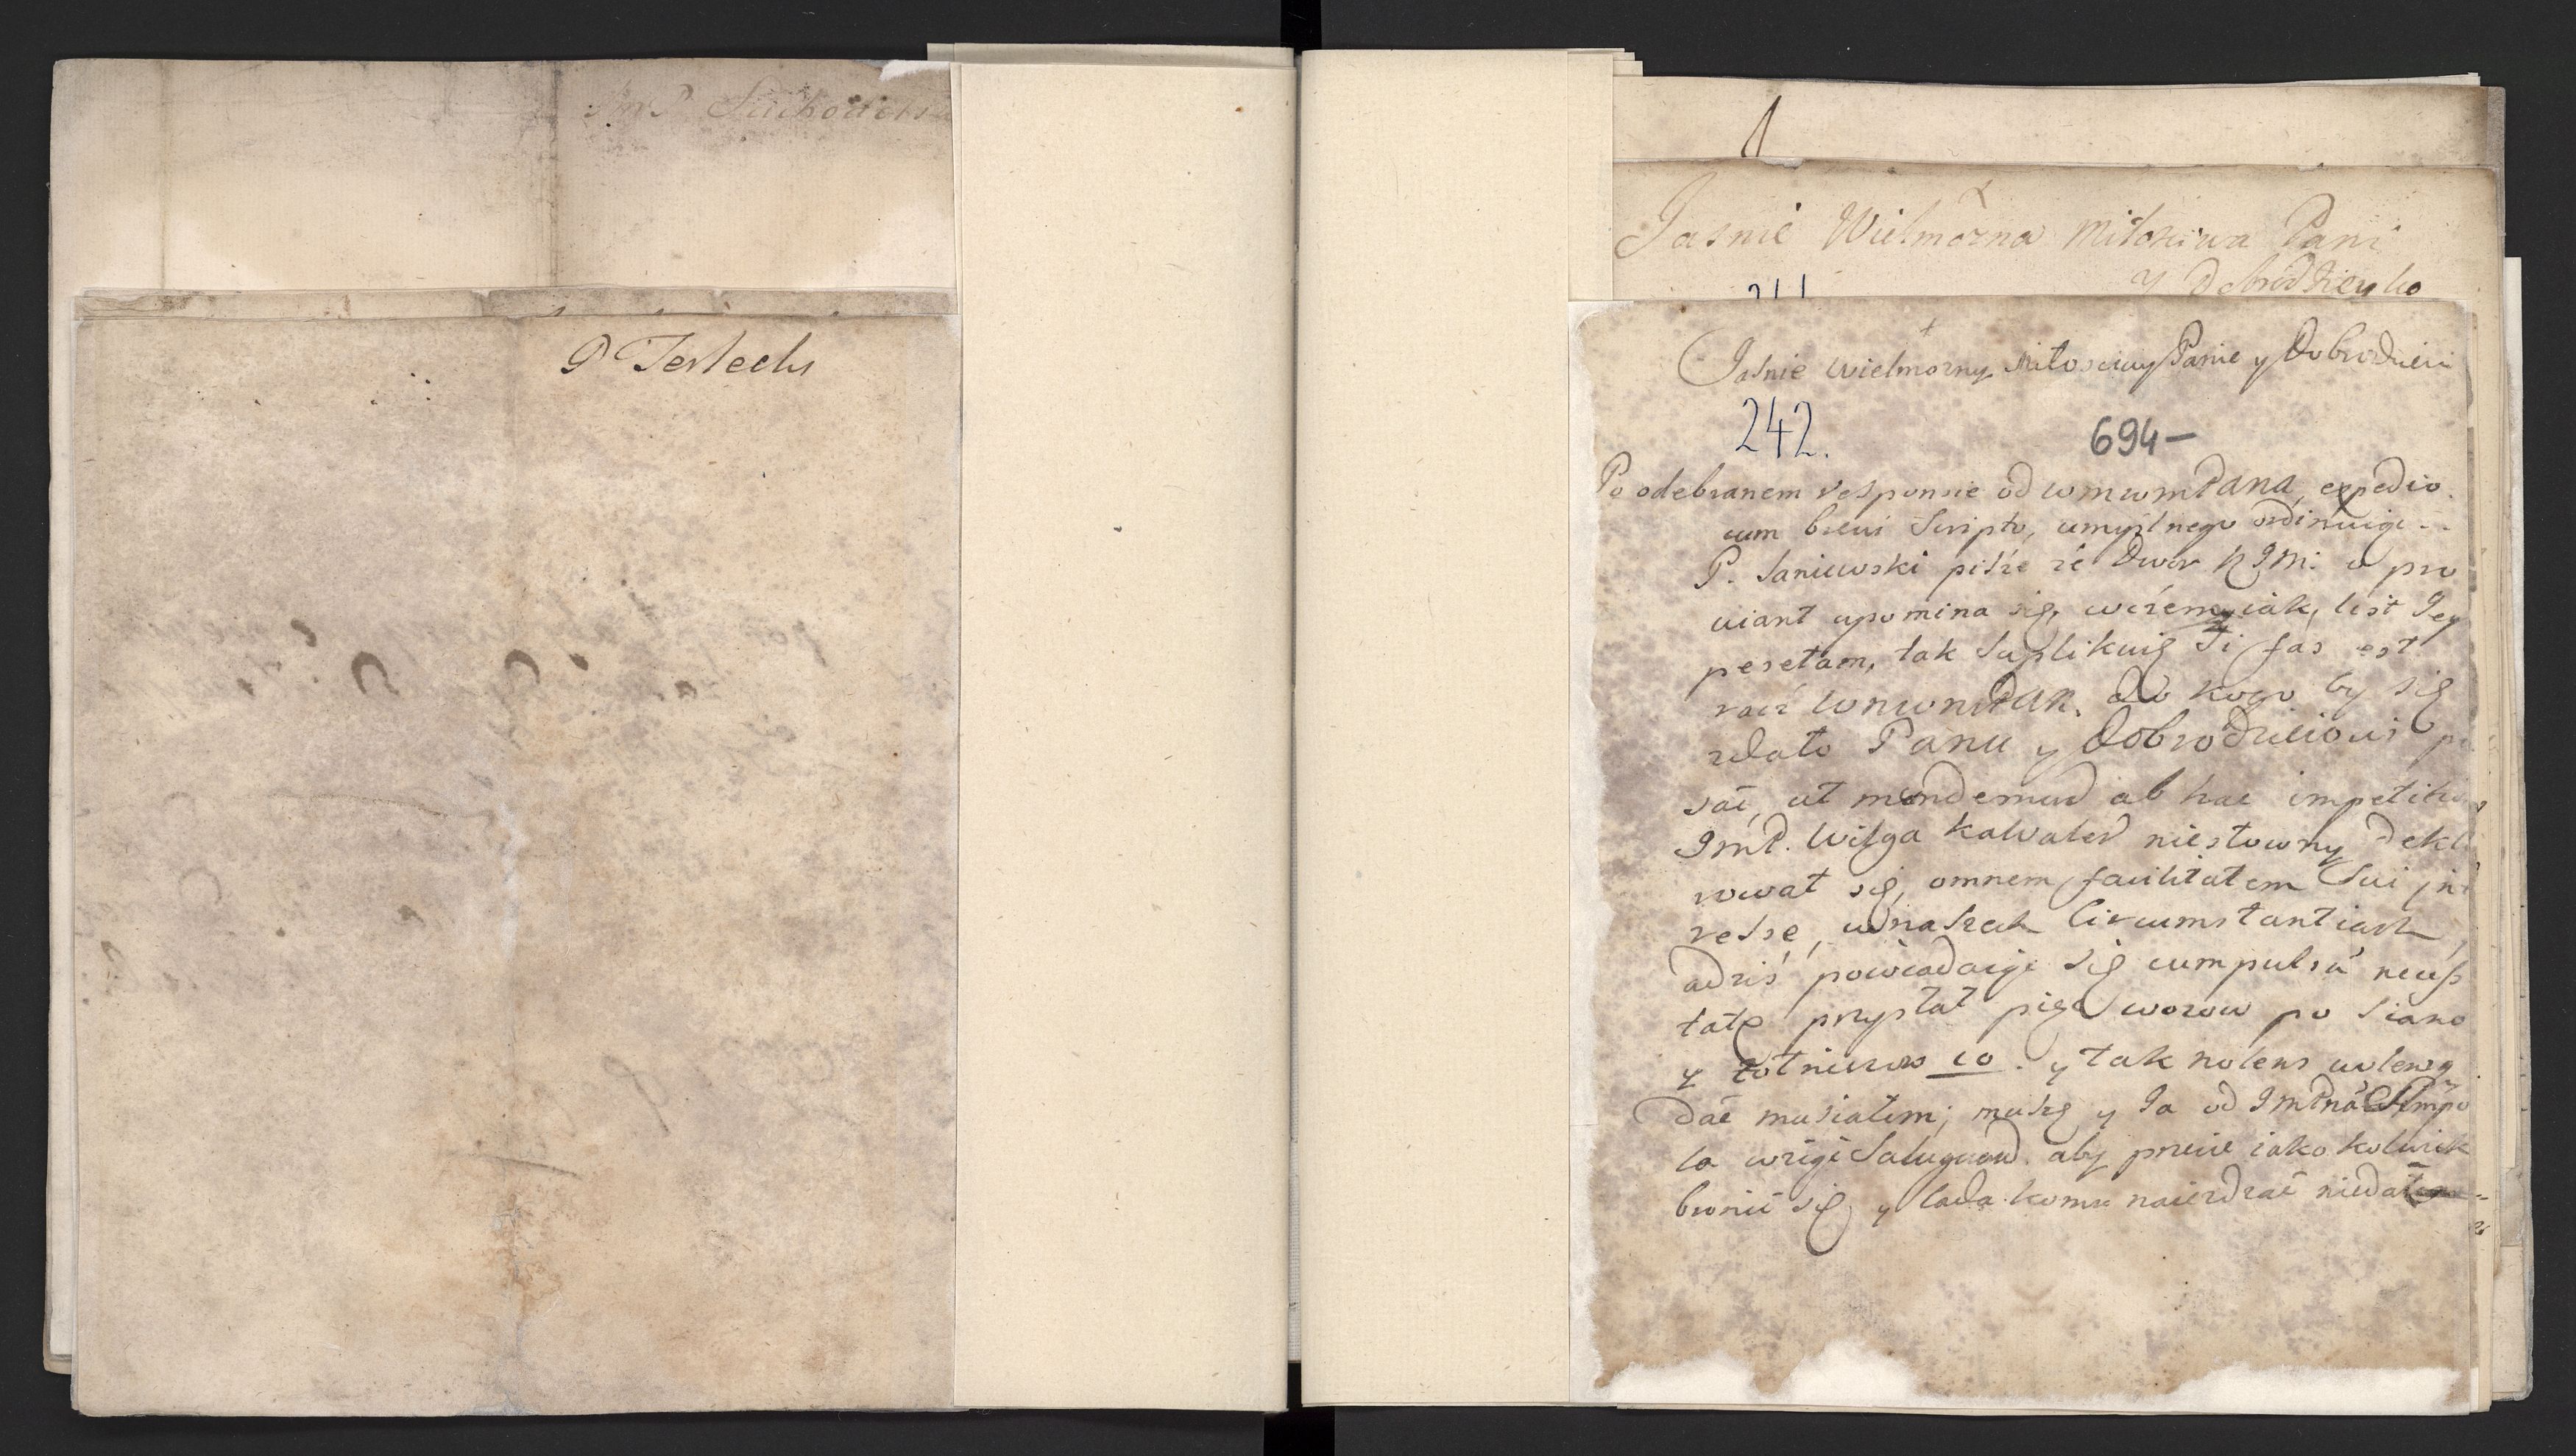 JmP Suchodolsk
P Terlecki
Jasnie Wielmozna Miłosciwa Pani
y Dobrodzieyko
241
Jasnie Wielmozny Miłosciwy Panie y Dobrodzieiu
242.
694—
Po odebranem responsie od WMWMPana, expedio
cum brevi scripto, umyslnego
P. Janiewski pisze ze Dwor KJM: o pro
uiant upomina się, iak, list Jeg
tak suplikuię si fas est
WMWMPan. do kogo by się
zdało Panu y Dobrodzieiowi pi
sać, ut ab hac impetitio
JmP. Wilga kawaler niesłowny dekl
rował się, omnem facilitatem sui int
resse, w naszech Circumstantiach,
a dziś powiadaiąc się cumpulsu necess
tate przysłał pięć wozow po siano
y zołnierow 10. y tak nolens volens
dać musiałem; muszę y Ja od JmPna
la wziąć Salugward. aby precie iako kolwiek
bronić się y lada komu naiezdzać niedał